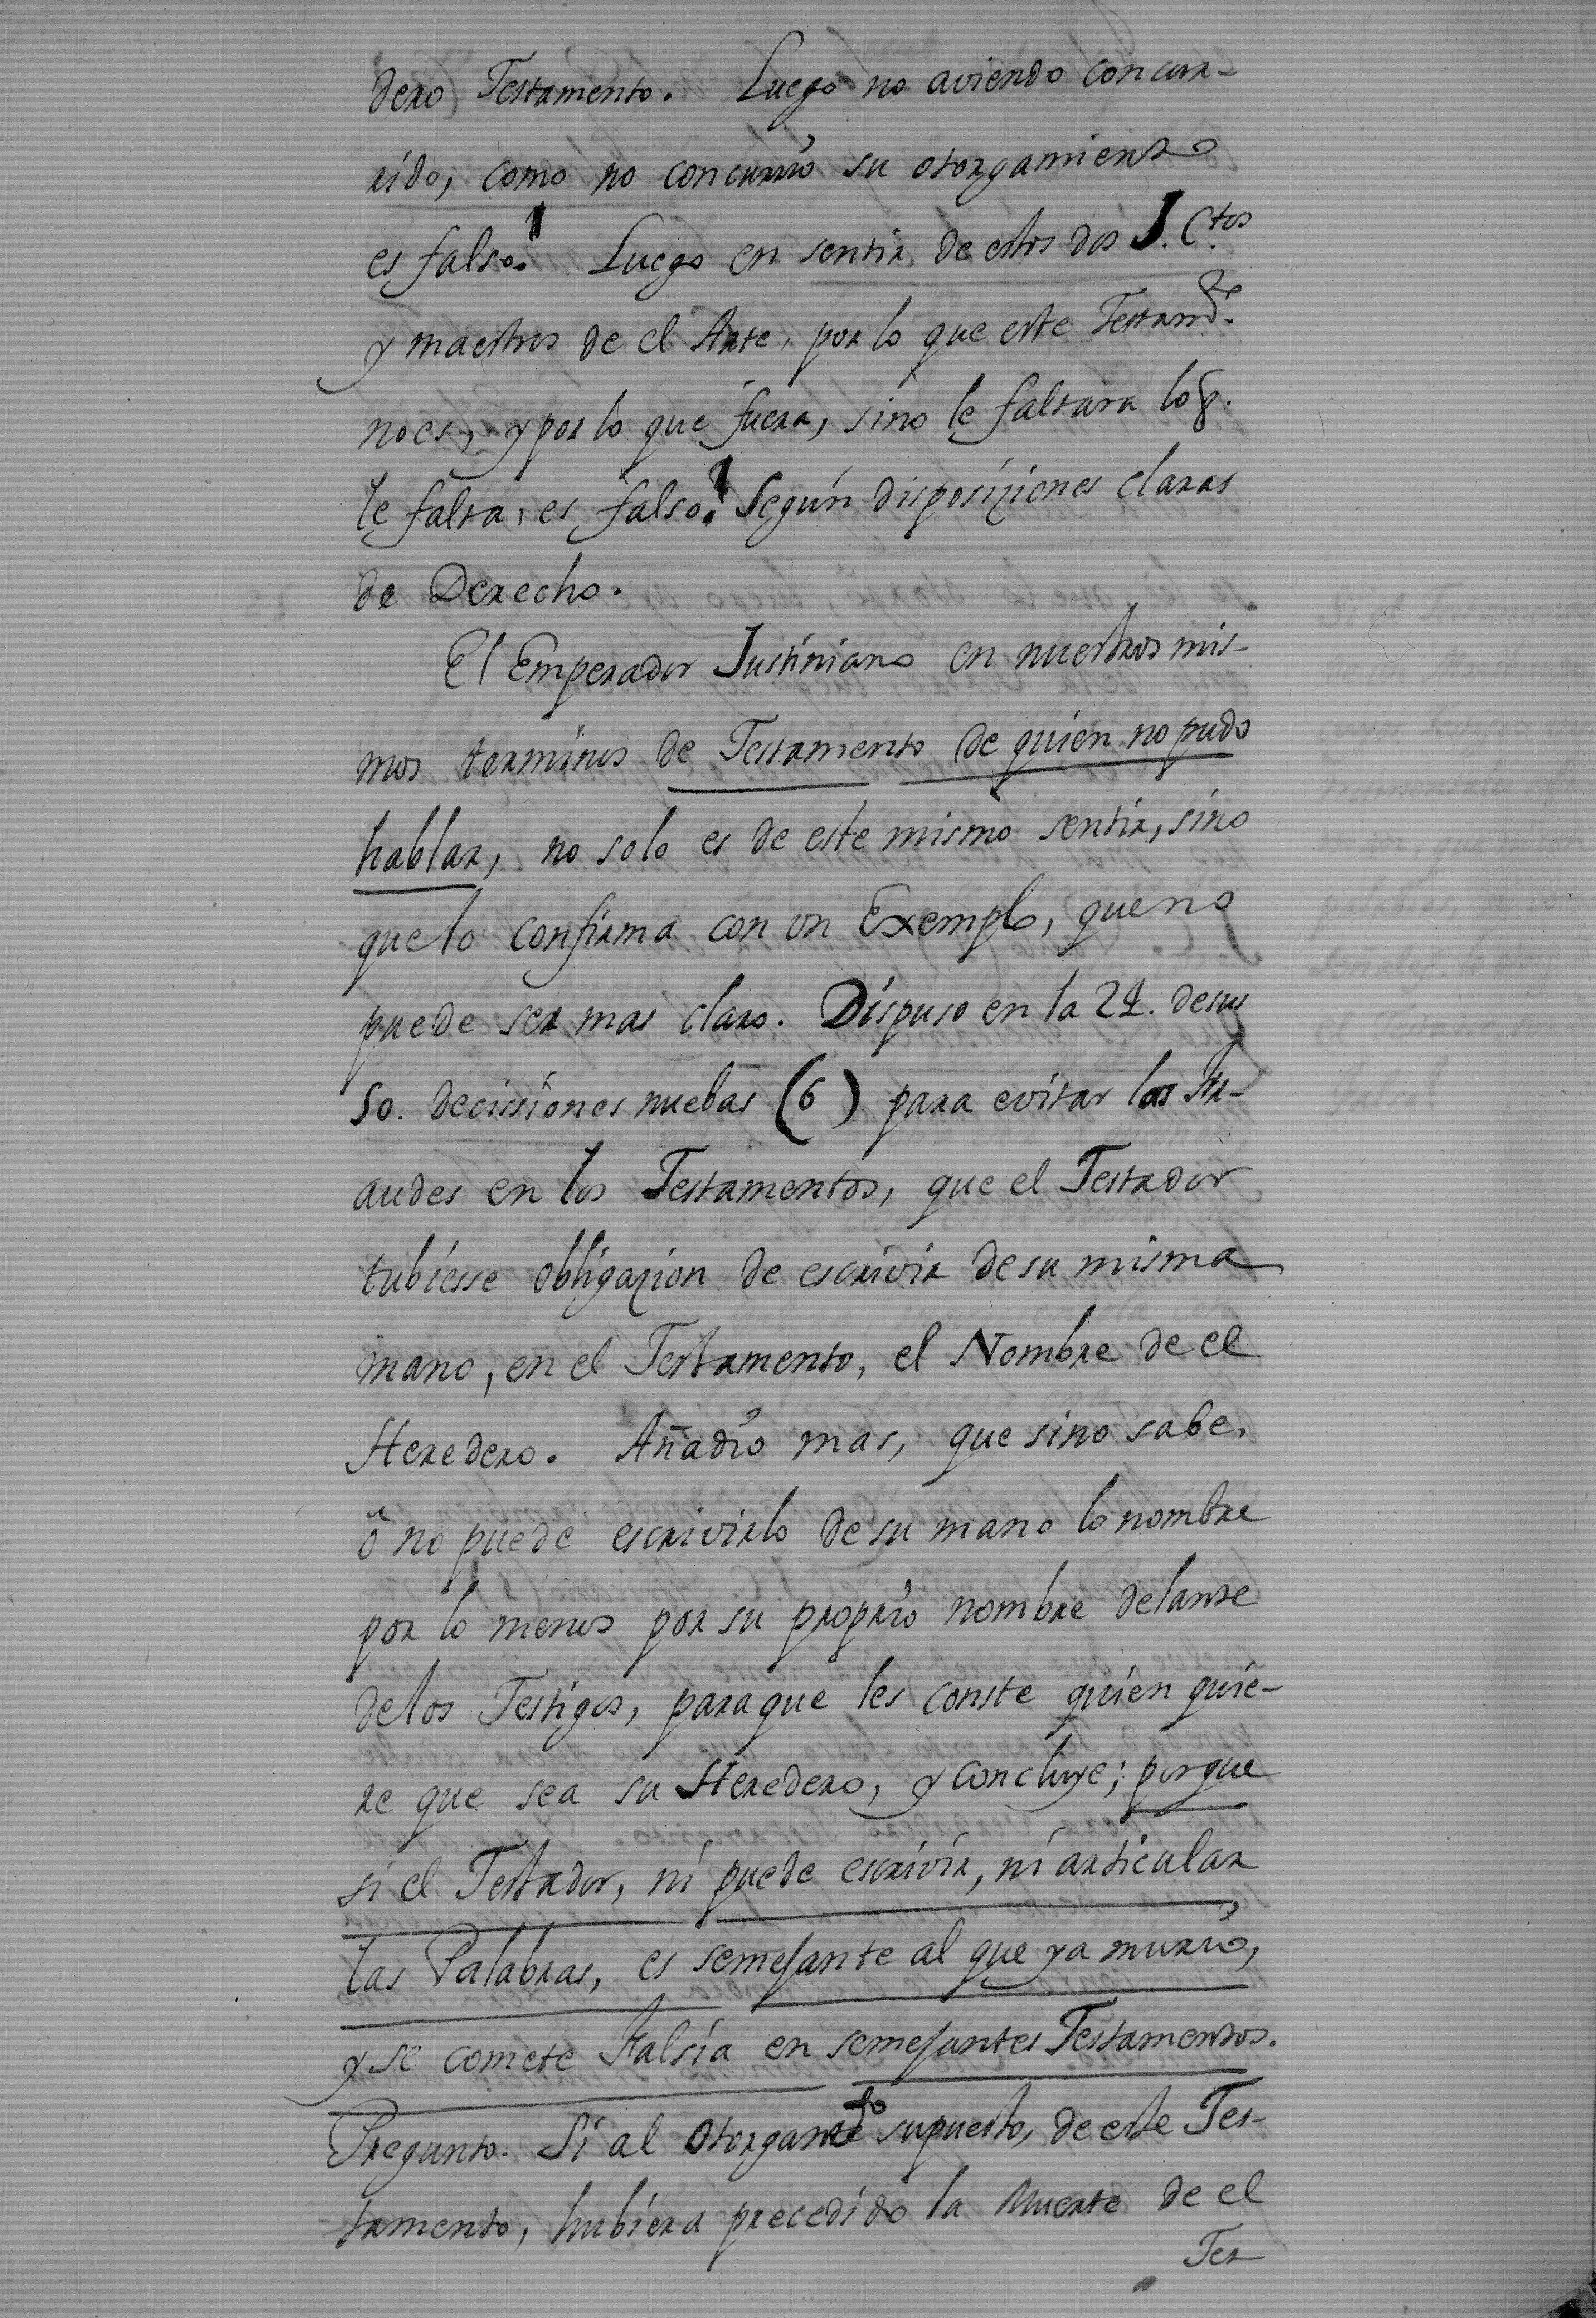 dero Testamento. Luego no aviendo concur-
rido, como no concurrió su otorgamiento
es falso! Luego en sentir de estos dos J. Ctos
y maestros de el Arte, por lo que este Testamto.
no es, y por lo que fuera, sino le faltara lo q.
le falta, es falso! Según disposiziones claras
de Derecho.
El Emperador Justiniano en nuestros mis-
mos terminos de Testamento de quien no pudo
hablar, no solo es de este mismo sentir, sino
que lo confirma con un Exemplo, que no
puede ser mas claro. Dispuso en la 24. de sus
50. decissiones nuebas (6) para evitar los Fr-
audes en los Testamentos, que el Testador
tubiesse obligazion de escrivir de su misma
mano, en el Testamento, el Nombre de el
Heredero. Añadió mas, que sino sabe,
ô no puede escrivirlo de su mano lo nombre
por lo menos por su proprio nombre delante
de los Testigos, paraque les conste quien quie-
re que sea su Heredero, y concluye; porque
si el Testador, ni puede escrivir, ni articular
las Palabras, es semejante al que ya murió,
y se comete Falsía en semejantes Testamentos.
Pregunto. Si al Otorgamto supuesto, de este Tes-
tamento, hubiera precedido la Muerte de el
Tes